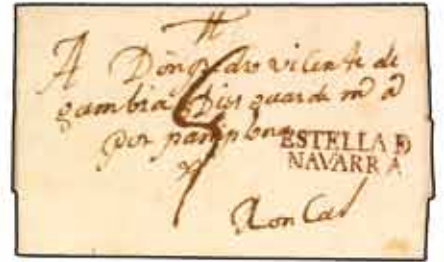 A Don Pedro vicente de
gambia Dios guarde m a
por pamplona
ESTELLA D
NAVARRA
Roncal